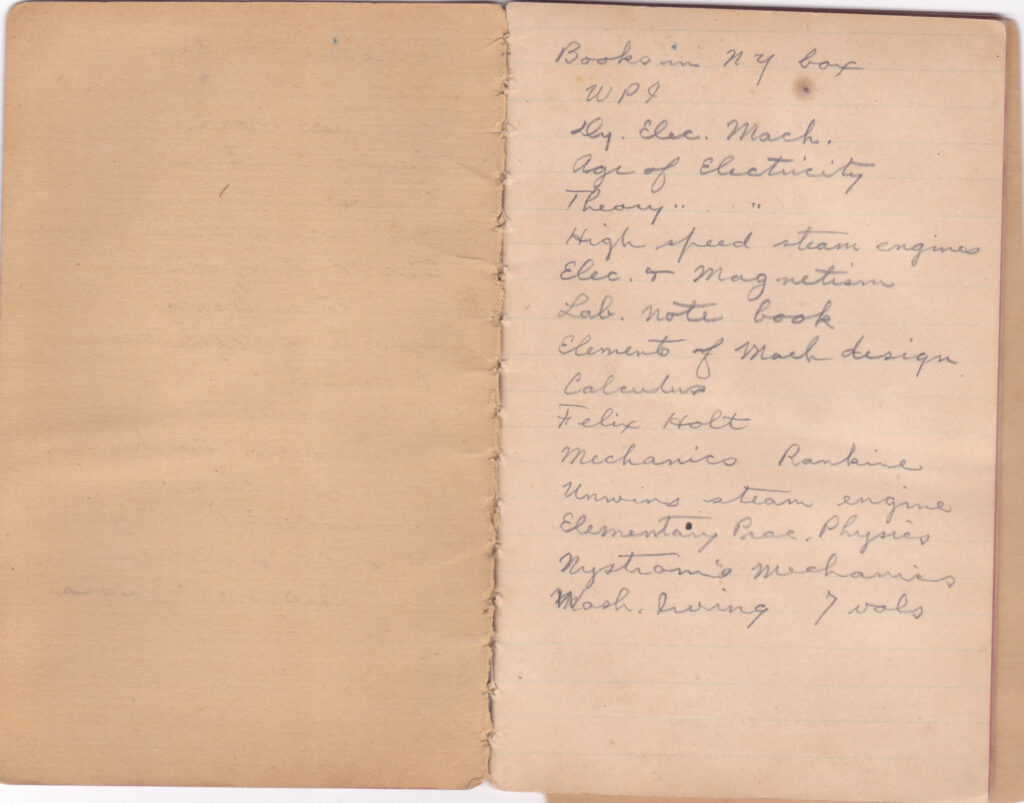 Books in NY box
WPI
Dy. Elec. Mach.
Age of Electricity
Theory " "
High speed steam engines
Elec. & Magnetism
Lab. note book
Elements of Mach design
Calculus
Felix Holt
Mechanics Rankine
Unwins steam engine
Elementary Prac. Physics
Nystrom's Mechanics
Wash. Irving 7 vols